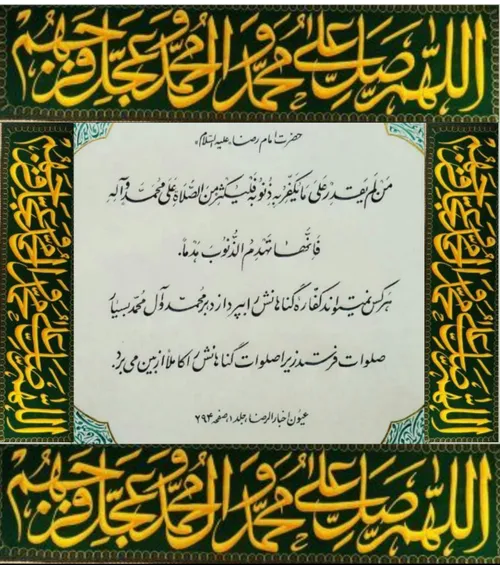 اللهم صل علی محمد و آل محمد و عجل فرجهم
حضرت امام رضا «علیه السلام»
مَن لَم یَقدِر عَلی ما یُکَفِّرُ بِهِ ذُنُوبَهُ فَلیُکثِر مِنَ الصَّلاةِ عَلی مُحَمَّدٍ وَ آلِهِ
فَإنَّها تَهدِمُ الذُّنُوبَ هَدماً.
هر کس نمیتواند کفاره گناهانش را بپردازد بر محمد و آل محمد بسیار
صلوات فرستد زیرا صلوات گناهانش را کاملاً از بین می‌برد.
عیون اخبار الرضا، جلد ۱، صفحه ۲۹۴
اللهم صل علی محمد و آل محمد و عجل فرجهم
اللهم صل علی محمد و آل محمد و عجل فرجهم
اللهم صل علی محمد و آل محمد و عجل فرجهم